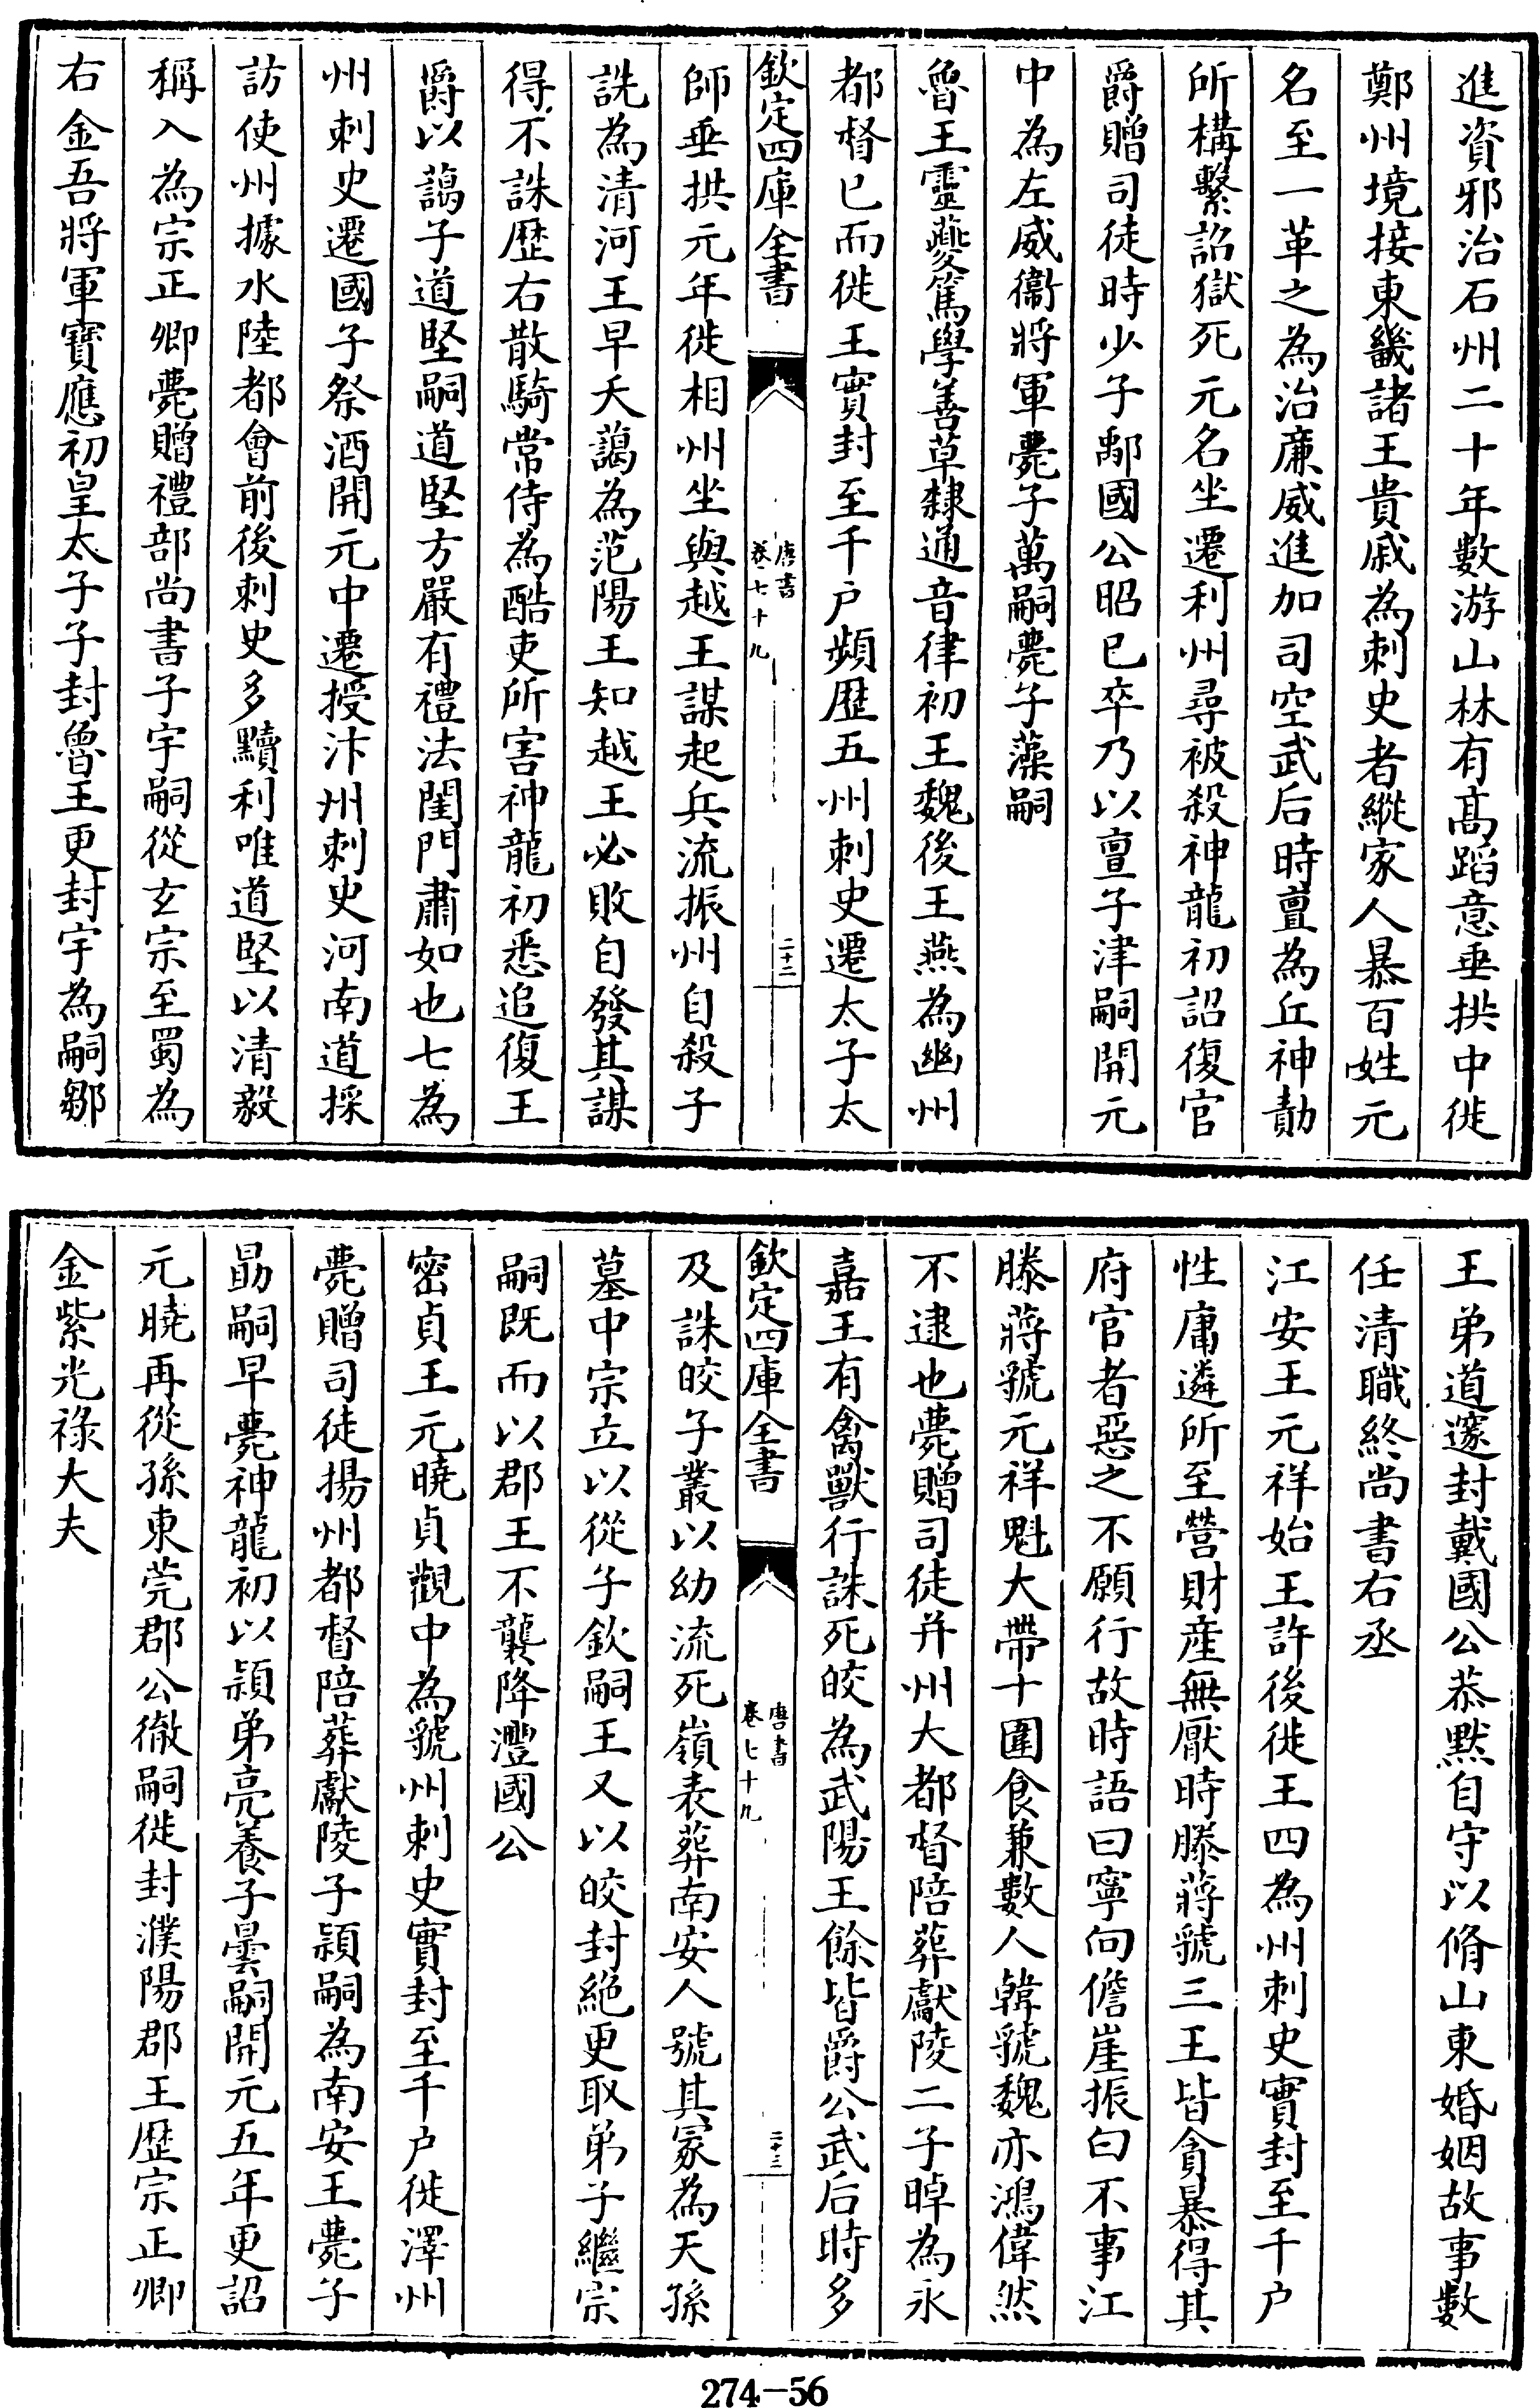 進資邪治石州二十年數游山林有髙蹈意垂拱中徙
鄭州境接東畿諸王貴戚為刺史者縱家人暴百姓元
名至一革之為治廉威進加司空武后時亶為丘神勣
所構繫詔獄死元名坐遷利州尋被殺神龍初詔復官
爵贈司徒時少子鄅國公昭已卒乃以亶子津嗣開元
中為左威衞將軍薨子萬嗣薨子藻嗣
魯王靈夔篤學善草隸通音律初王魏後王燕為幽州
都督已而徙王實封至千户頻歴五州刺史遷太子太
欽定四庫全書
唐書
卷七十九
二十二
師垂拱元年徙相州坐與越王謀起兵流振州自殺子
詵為清河王早夭藹為范陽王知越王必敗自發其謀
得不誅歴右散騎常侍為酷吏所害神龍初悉追復王
爵以藹子道堅嗣道堅方嚴有禮法閨門肅如也七為
州刺史遷國子祭酒開元中遷授汴州刺史河南道採
訪使州據水陸都會前後刺史多黷利唯道堅以清毅
稱入為宗正卿薨贈禮部尚書子宇嗣從玄宗至蜀為
右金吾將軍寶應初皇太子子封魯王更封宇為嗣鄒
王弟道邃封戴國公恭黙自守以脩山東婚姻故事數
任清職終尚書右丞
江安王元祥始王許後徙王四為州刺史實封至千户
性庸遴所至營財産無厭時滕蔣虢三王皆貪暴得其
府官者惡之不願行故時語曰寧向儋崖振白不事江
滕蔣虢元祥魁大帶十圍食兼數人韓虢魏亦鴻偉然
不逮也薨贈司徒并州大都督陪葬獻陵二子晫為永
嘉王有禽獸行誅死皎為武陽王餘皆爵公武后時多
欽定四庫全書
唐書
卷七十九
二十三
及誅皎子叢以幼流死嶺表葬南安人號其冡為天孫
墓中宗立以從子欽嗣王又以皎封絶更取弟子繼宗
嗣既而以郡王不襲降澧國公
密貞王元曉貞觀中為虢州刺史實封至千户徙澤州
薨贈司徒揚州都督陪葬獻陵子頴嗣為南安王薨子
勗嗣早薨神龍初以頴弟亮養子曇嗣開元五年更詔
元曉再從孫東莞郡公徹嗣徙封濮陽郡王歴宗正卿
金紫光祿大夫
274-56